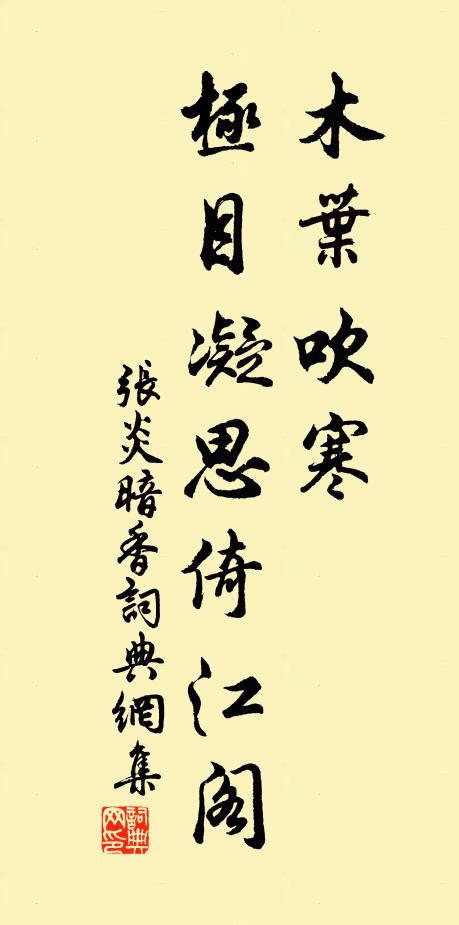 木葉吹寒
極目凝思倚江閣
張炎暗香詞典網集
詞典
网印